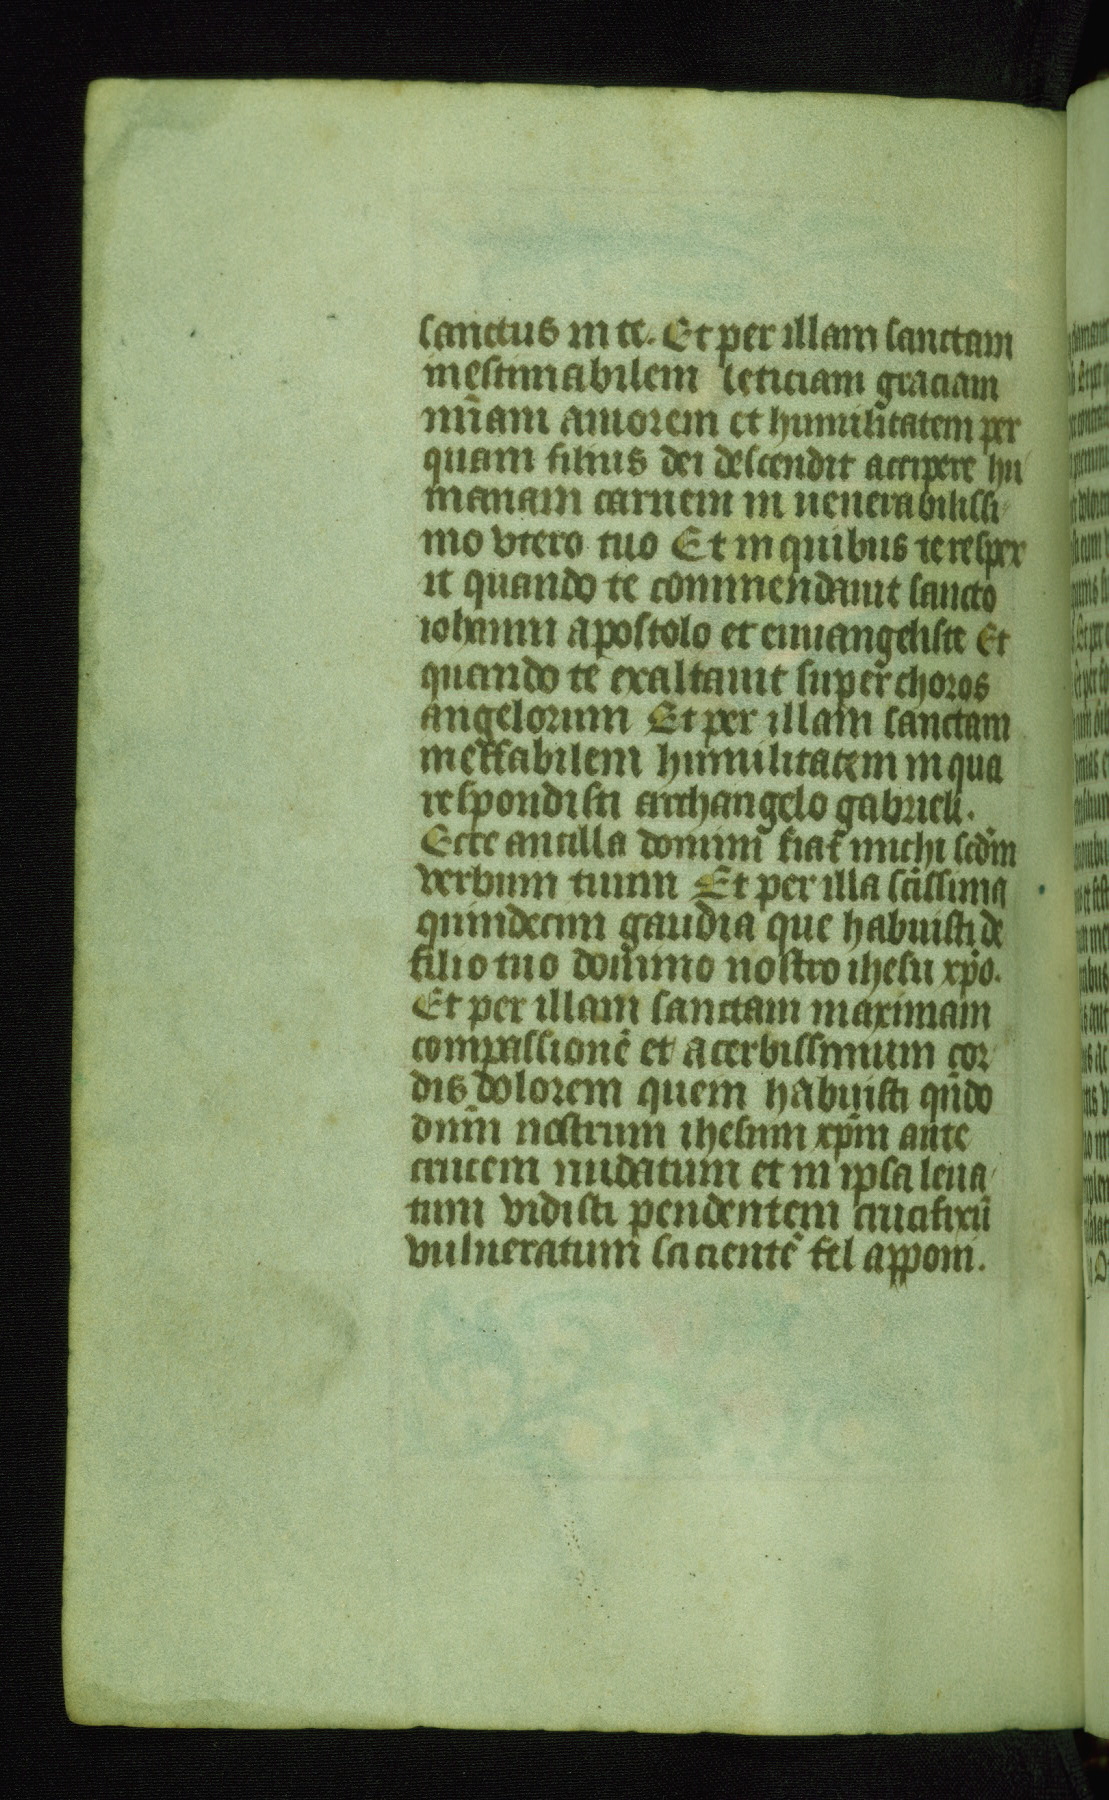 sanctus in te. Et per illam sanctam
inestimabilem leticiam graciam
mīam amorem et humilitatem per
quam filius dei descendit accipere hu
manam carnem in uenerabilissi
mo vtero tuo Et in quibus te respex
it quando te commendauit sancto
iohanni apostolo et euuangeliste Et
quando te exaltauit super choros
angelorum Et per illam sanctam
ineffabilem humilitatem in qua
respondisti archangelo gabrieli.
Ecce ancilla domini fiat michi scdm̄
verbum tuum Et per illa scīssima
quindecim gaudia que habuisti de
filio tuo domino nostro ihesu xp̄o.
Et per illam sanctam maximam
compassionē et acerbissimum cor
dis dolorem quem habuisti qn̄do
dnm̄ nostrum ihesum xpm̄ ante
crucem nudatum et in ipsa leua
tum vidisti pendentem crucifixū
vulneratum sicientē fel apponi.